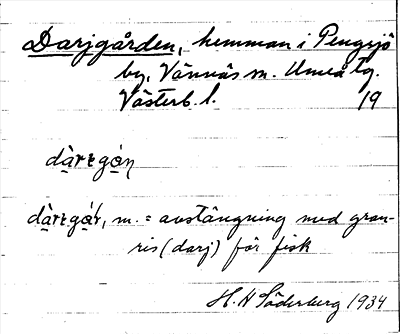 Darjgården, hemman i Pengsjö
by, Vännäs sn. Umeå tg.
Västerb. l. 19
dàrɛgo̱ṇ
dàrɛgàɽ, m. = avstängning med gran-
ris (darj) för fisk
H. H Söderberg 1934